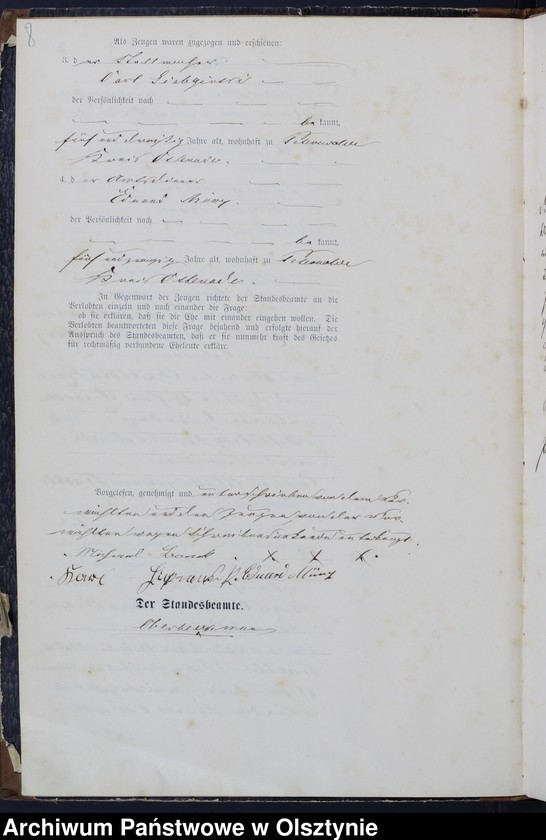 8
Als Zeugen waren zugezogen und erschienen:
3. der Stellmacher
Carl
der Persönlichkeit nach
bekannt,
fünf und dreißig Jahre alt, wohnhaft zu
Kreis Osterode.
4. der Amtsdiener
Eduard Münz.
der Persönlichkeit nach
bekannt,
fünf und zwanzig Jahre alt, wohnhaft zu
Kreis Osterode.
In Gegenwart der Zeugen richtete der Standesbeamte an die
Verlobten einzeln und nach einander die Frage:
ob sie erklären, daß sie die Ehe mit einander eingehen wollen. Die
Verlobten beantworteten diese Frage bejahend und erfolgte hierauf der
Ausspruch des Standesbeamten, daß er sie nunmehr kraft des Gesetzes
für rechtmäßig verbundene Eheleute erkläre.
Vorgelesen, genehmigt und unterschrieben von dem Ver-
mählten und den Zeugen von der Ver-
mählten wegen Schreibensunkunde unterkreuzt.
Michael + + +
Karl Eduard Münz
Der Standesbeamte.
Archiwum Państwowe w Olsztynie